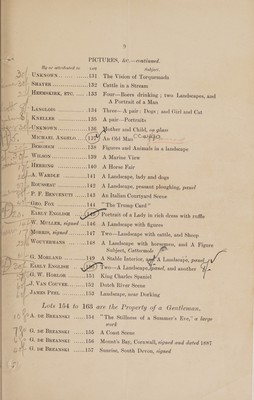 8
PICTURES, &c.—continued.
By or attributed to Lot Subject.
Unknown ......131 The Vision of Torquemada
Shayer ......132 Cattle in a Stream
Heemskirk, etc. ....133 Four—Boors drinking; two Landscapes, and
A Portrait of a Man
Langlois ......134 Three—A pair: Dogs; and Girl and Cat
Kneller ......135 A pair—Portraits
Unknown ......136 Mother and Child, on glass
Michael Angelo ....137 An Old Man
Berghem ......138 Figures and Animals in a landscape
Wilson ......139 A Marine View
Herring ......140 A Horse Fair
A. Wardle ......141 A Landscape, lady and dogs
Rousseau ......142 A Landscape, peasant ploughing, panel
P. F. Benvenuti ...143 An Italian Courtyard Scene
Geo. Fox ......144 "The Trump Card"
Early English ......145 Portrait of a Lady in rich dress with ruffe
W. Muller, signed ...146 A Landscape with figures
Morris, signed ......147 Two—Landscape with cattle, and Sheep
Wouvermans ......148 A Landscape with horsemen, and A Figure
Subject,
G. Morland ......149 A Stable Interior, and A Landscape, panel
Early English ......150 Two—A Landscape, panel, and another
G. W. Horlor ......151 King Charles Spaniel
J. Van Couver ......152 Dutch River Scene
James Peel ......153 Landscape, near Dorking
Lots 154 to 163 are the Property of a Gentleman.
A. de Breanski ......154 "The Stillness of a Summer's Eve," a large
work
G. de Breanski ......155 A Coast Scene
G. de Breanski ......156 Mount's Bay, Cornwall, signed and dated 1887
G. de Breanski ......157 Sunrise, South Devon, signed